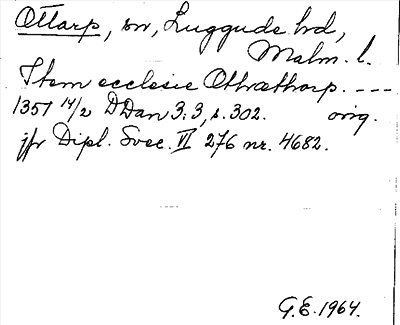 Ottarp, sn, Luggude hd,
Malm. l.
Item ecclesie Othæthorp. ---
1351 14/2 DDan 3:3, s. 302. orig.
jfr Dipl. Svec. VI 276 nr. 4682.
G.E. 1964.